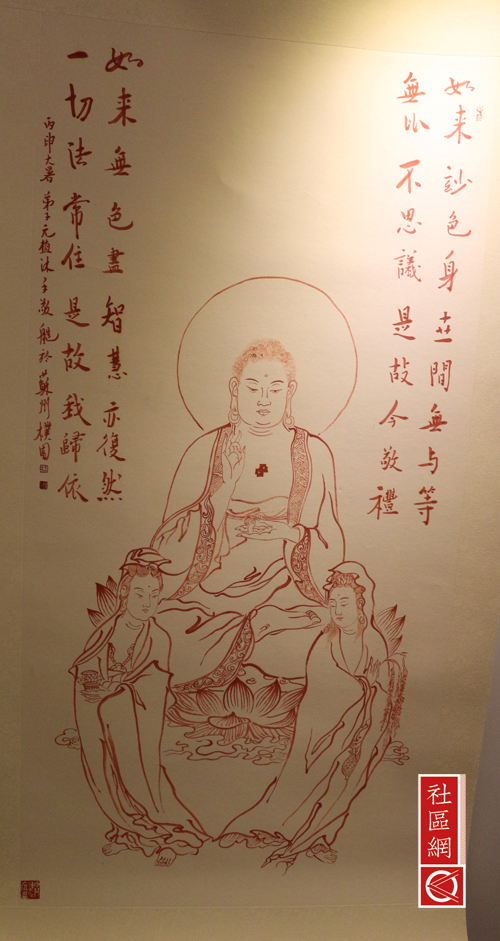 如来妙色身 世間無与等
無比不思議 是故今敬禮
如来無色盡 智慧亦復然
一切法常住 是故我歸依
丙申大暑 弟子元植沐手敬 於蘇州樸園
社區網